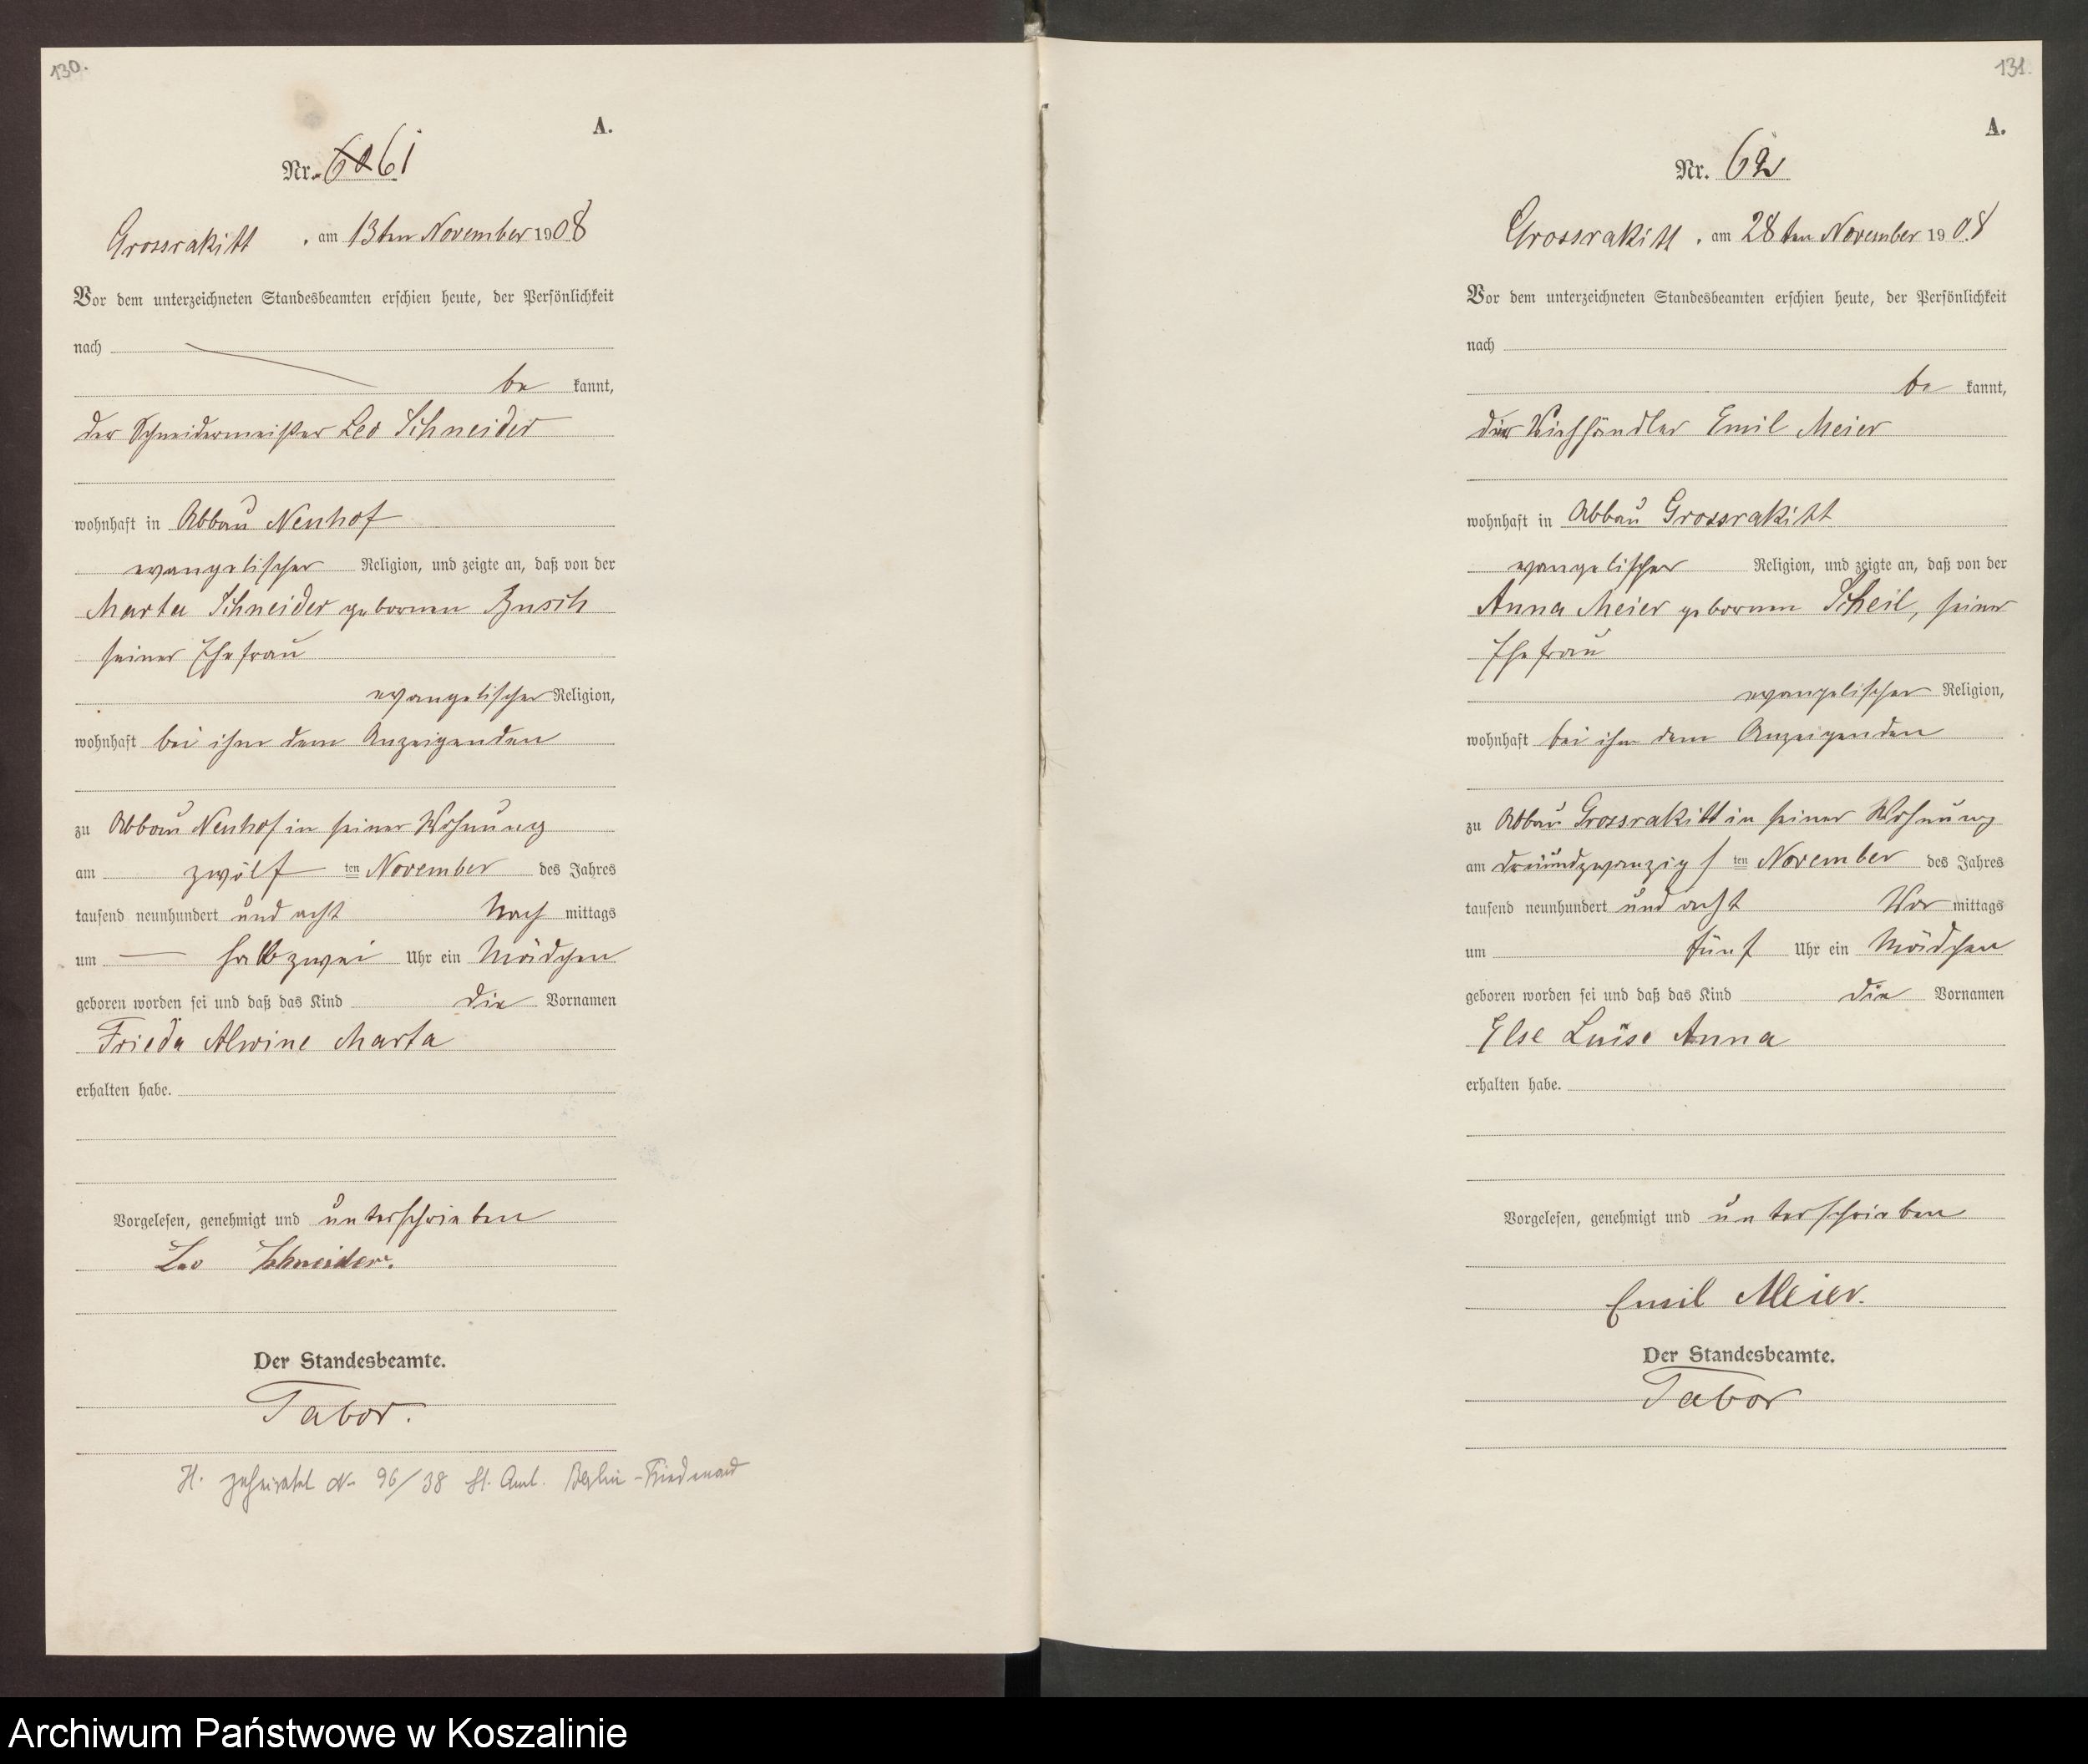 130.
A.
Nr. 60 61
Grossrakitt, am 13ten November 1908
Vor dem unterzeichneten Standesbeamten erschien heute, der Persönlichkeit
nach
be kannt,
der Schneidermeister Leo Schneider
wohnhaft in Abbau Neuhof
evangelischer Religion, und zeigte an, daß von der
Marta Schneider geborenen Busch
seiner Ehefrau
evangelischer Religion,
wohnhaft bei ihm dem Anzeigenden
zu Abbau Neuhof in seiner Wohnung
am zwölf ten November des Jahres
tausend neunhundert und acht Nach mittags
um halb zwei Uhr ein Mädchen
geboren worden sei und daß das Kind die Vornamen
Frieda Alwine Marta
erhalten habe.
Vorgelesen, genehmigt und unterschrieben
Leo Schneider.
Der Standesbeamte.
Tabor.
H. geheiratet Nr 96/38 St. Amt. Berlin-Friedenau
131.
A.
Nr. 62
Grossrakitt, am 28ten November 1908
Vor dem unterzeichneten Standesbeamten erschien heute, der Persönlichkeit
nach
be kannt,
der Viehhändler Emil Meier
wohnhaft in Abbau Grossrakitt
evangelischer Religion, und zeigte an, daß von der
Anna Meier geborenen Scheil, seiner
Ehefrau
evangelischer Religion,
wohnhaft bei ihm dem Anzeigenden
zu Abbau Grossrakitt in seiner Wohnung
am dreiundzwanzigs ten November des Jahres
tausend neunhundert und acht Vor mittags
um fünf Uhr ein Mädchen
geboren worden sei und daß das Kind die Vornamen
Else Luise Anna
erhalten habe.
Vorgelesen, genehmigt und unterschrieben
Emil Meier.
Der Standesbeamte.
Tabor
Archiwum Państwowe w Koszalinie